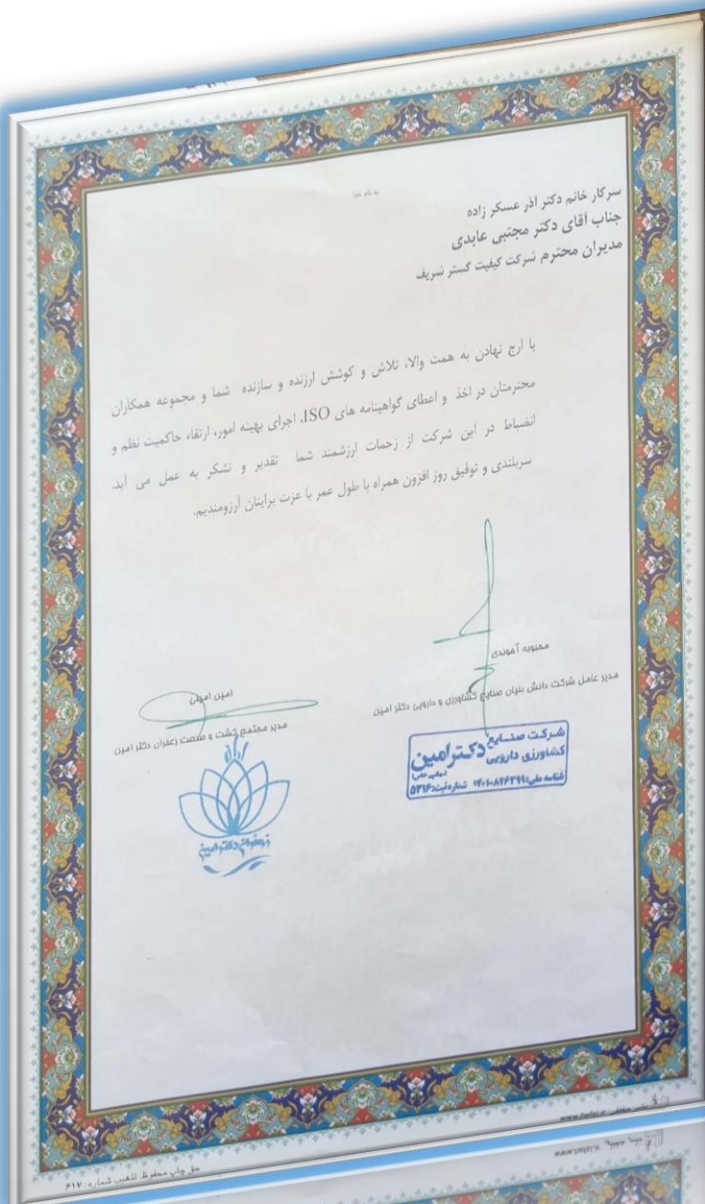 به نام خدا
سرکار خانم دکتر اذر عسکر زاده
جناب آقای دکتر مجتبی عابدی
مدیران محترم شرکت کیفیت گستر شریف
با ارج نهادن به همت والا، تلاش و کوشش ارزنده و سازنده شما و مجموعه همکاران
محترمتان در اخذ و اعطای گواهینامه های ISO، اجرای بهینه امور، ارتقاء حاکمیت نظم و
انضباط در این شرکت از زحمات ارزشمند شما تقدیر و تشکر به عمل می آید.
سربلندی و توفیق روز افزون همراه با طول عمر با عزت برایتان آرزومندیم.
محبوبه آخوندی
مدیر عامل شرکت دانش بنیان صنایع کشاورزی و دارویی دکتر امین
امین امینی
مدیر مجتمع کشت و صنعت زعفران دکتر امین
شرکت صنایع
کشاورزی دارویی دکتر امین
شماره ثبت: ۵۳۱۶
زعفران دکتر امین
حق چاپ محفوظ تذهیب شماره: ۶۱۷